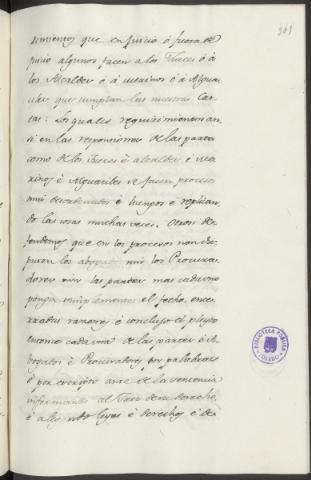 301
rimientos que en juicio ó fuera de
juicio algunos facen a los Jueces ó á
los Alcaldes ó á merinos ó á Algua-
ciles que cumplan las nuestras Car-
tas: Los quales requirimientos an-
si en las responsiones de las partes
como de los Jueces é alcaldes é Me-
rinos é Alguaciles se facen procesos
mui desordenados é luengos é replican-
do las cosas muchas veces. Otrosi de-
fendemos que en los procesos non dis-
puten los abogados nin los Procura-
dores nin las partes mas cada uno
ponga simplemente el fecho, ence-
rradas razones é concluso el pleyto
entonce cada una de las partes é A-
bogados é Procuradores por palabras
é por escripto ante de la sentencia
informando al Juez de su derecho
é alegando leyes é derechos é de-
BIBLIOTECA PÚBLICA
TOLEDO